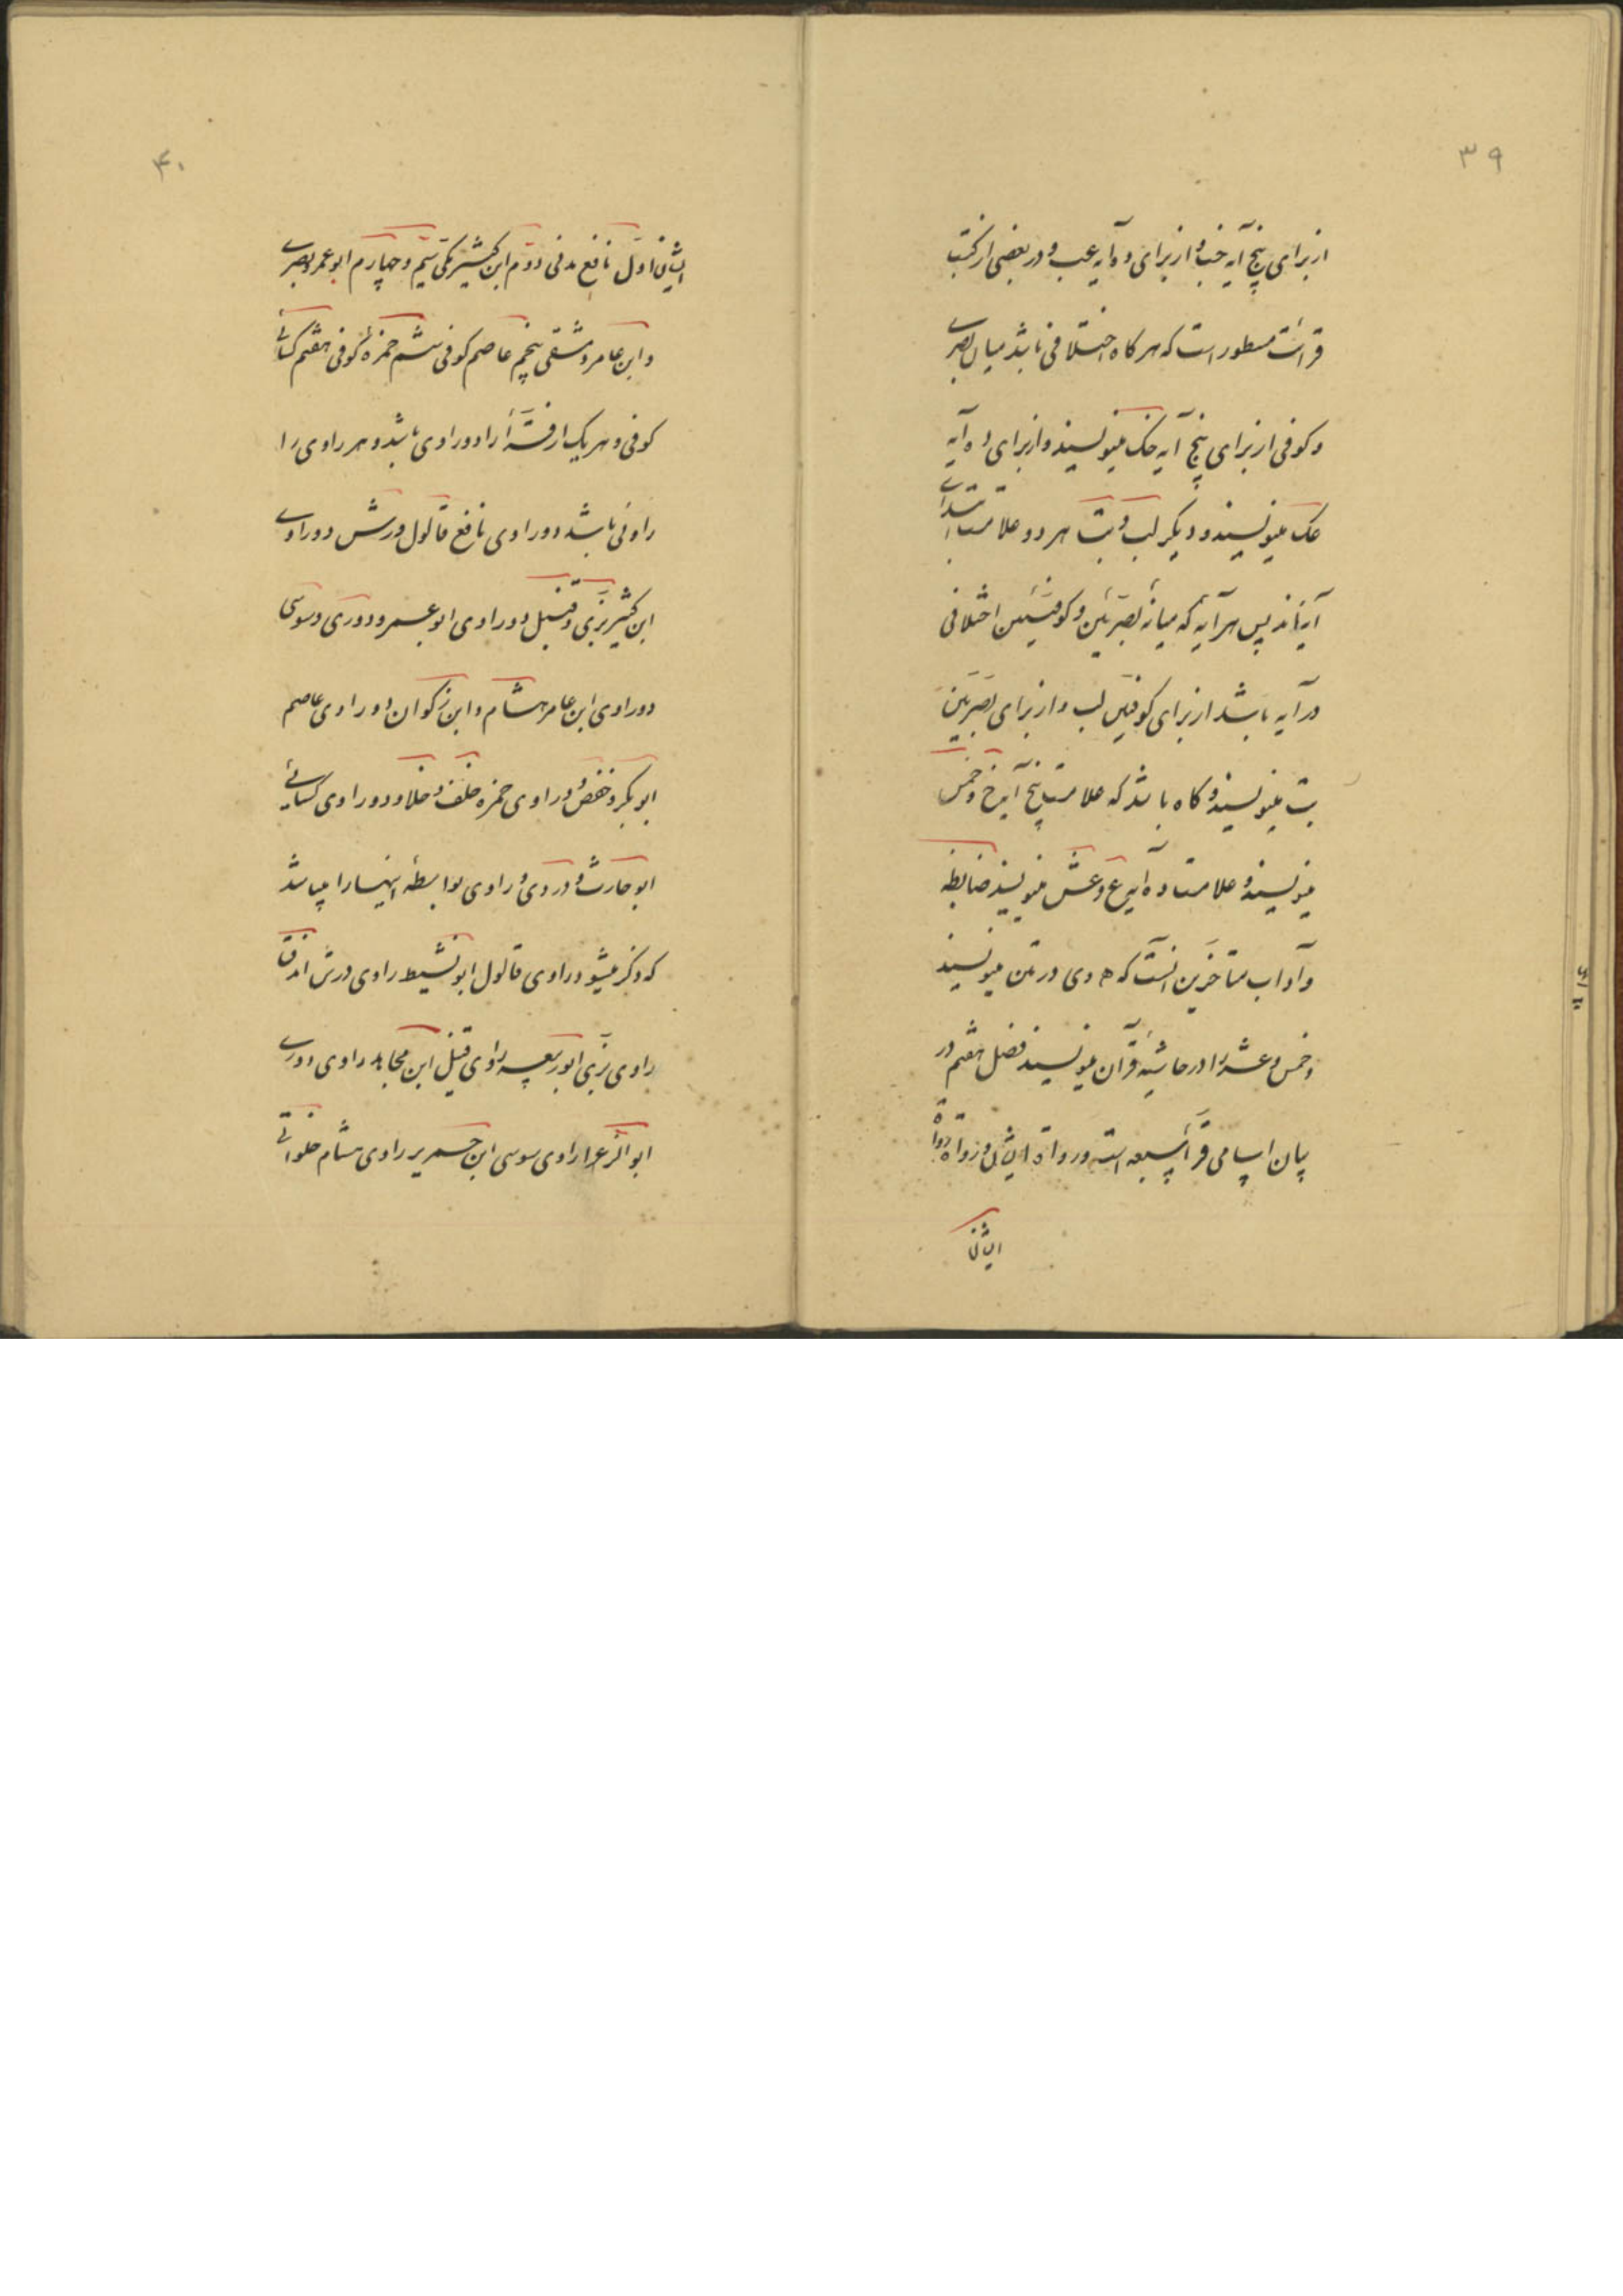 ۳۹
از برای پنج آیه خب و از برای ده آیه عب و در بعضی از کتب
قرائت مسطور است که هر کاه اختلافی باشد میان بصری
و کوفی از برای پنج آیه خک مینویسند و از برای ده آیه
عک مینویسند و دیکر لب و تب هر دو علامت ابتدای
آیه‌اند پس هر آیه که میانه بصریین و کوفیین اختلافی
در آیه باشد از برای کوفیین لب و از برای بصریین
تب مینویسند و کاه باشد که علامت پنج آیه خ و خمس
مینویسند و علامت ده آیه ع و عشر مینویسند ضابطه
و آداب متاخرین آنست که ه و ی در متن مینویسند
و خمس و عشر را در حاشیه قرآن مینویسند فصل هفتم در
بیان اسامی قرآء سبعه است و رواة ایشان و رواة رواة
ایشان
۴۰
ایشان اول نافع مدنی دوم ابن کثیر مکی سیم و چهارم ابو عمرو بصری
و ابن عامر دمشقی پنجم عاصم کوفی ششم حمزه کوفی هفتم کسائی
کوفی و هر یک از قرآء را دو راوی باشد و هر راوی را
راوئی باشد دو راوی نافع قالون ورش دو راوی
ابن کثیر بزی و قنبل دو راوی ابو عمرو دوری و سوسی
دو راوی ابن عامر هشام و ابن ذکوان دو راوی عاصم
ابو بکر و حفص دو راوی حمزه خلف و خلاد و دو راوی کسائی
ابو حارث و دوری و راوی بواسطه اینها را میباشد
که ذکر میشود راوی قالون ابو نشیط راوی ورش ازرق
راوی بزی ابو ربیعه راوی قنبل ابن مجاهد راوی دوری
ابو الزعرا راوی سوسی ابن جریر راوی هشام حلوانی